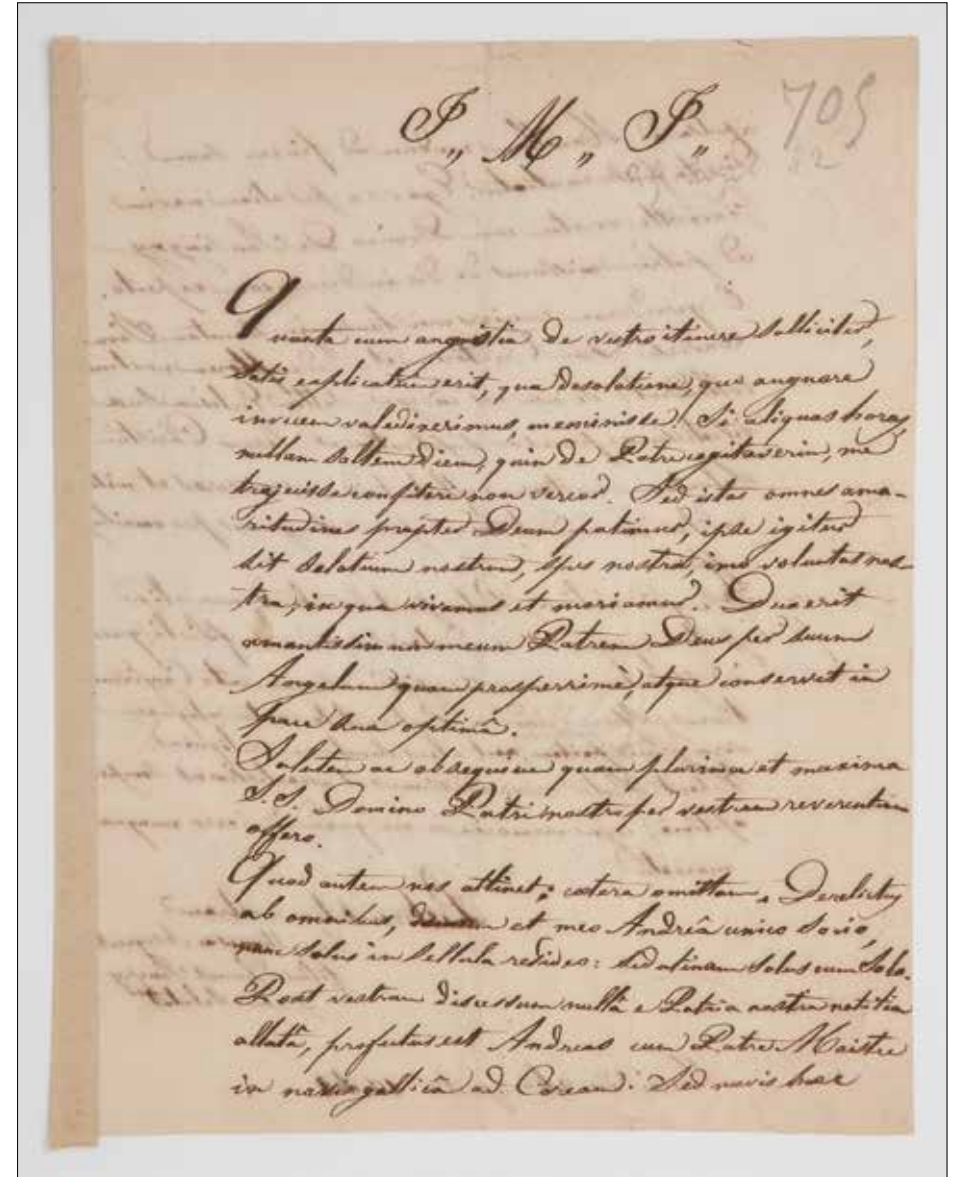 J„ M„ J„
705
Quanta cum angustia de vestro itinere sollicitus,
satis explicatum erit, qua desolatione, quo angore
invicem valedixerimus, meminisse! Si aliquas horas,
nullam saltem diem, quin de Patre cogitaverim, me
trajecisse confiteri non vereor. Sed istas omnes ama-
ritudines propter Deum patimur, ipse igitur
sit solatium nostrum, spes nostra, imo voluntas nos-
tra, in qua vivamus et moriamur. Duxerit
amantissimum meum Patrem Deus per suum
Angelum quam prosperrimè, atque conservet in
pace sua optimâ.
Salutem ac obsequium quam plurima et maxima
S. S. Domino Patri nostro per vestram reverentiam
offero.
Quod autem nos attinet; cetera omittam, Derelictus
ab omnibus, et meo Andreâ unico socio,
nunc solus in sellula resideo: sed utinam solus cum Solo.
Post vestram discessum nullâ e Patria nostra notitia
allatâ, profectus est Andreas cum Patre Maistre
in navi gallicâ ad Coream: Sed navis haec